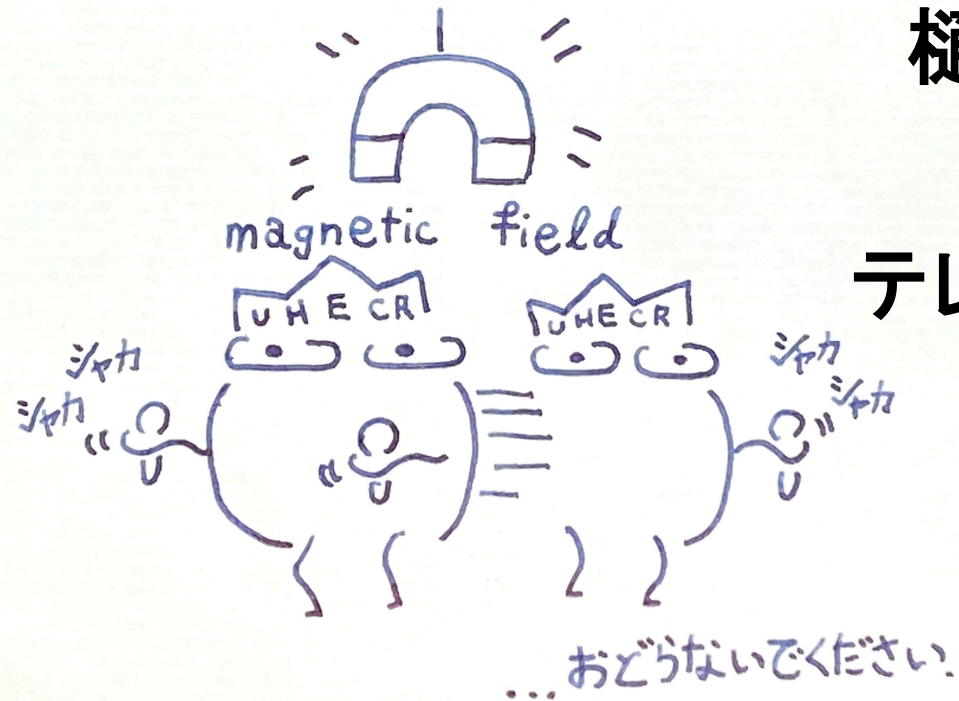 樋
magnetic field
テレ
UHECR
UHECR
シャカ
シャカ
シャカ
シャカ
...おどらないでください.